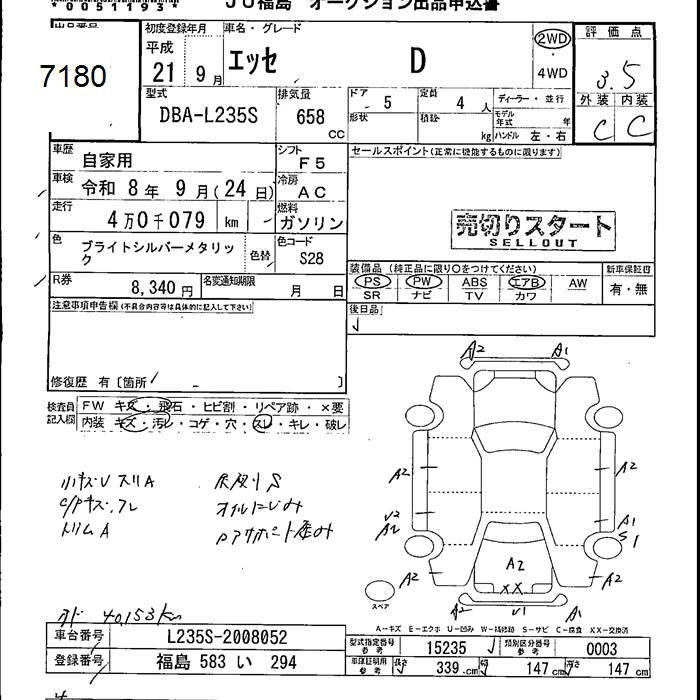 *0051193*
JU福島 オークション出品申込書
出品番号
7180
初度登録年月
平成
21年 9月
車名・グレード
エッセ D
2WD
4WD
評価点
3.5
外装 内装
C C
型式
DBA-L235S
排気量
658
CC
ドア
5
形状
定員
4人
積載
kg
ディーラー・並行
モデル年式 年
ハンドル 左・右
車歴
自家用
シフト
F5
セールスポイント(正常に機能するものに限ります)
車検
令和 8年 9月(24日)
冷房
AC
走行
4万0千079 km
燃料
ガソリン
売切りスタート
SELLOUT
色
ブライトシルバーメタリック
色替
色コード
S28
装備品 (純正品に限り○をつけてください)
新車保証書
PS PW ABS エアB AW
有・無
SR ナビ TV カワ
R券
8,340円
名変通知期限
月 日
後日品
注意事項申告欄(不具合内容等は具体的に記入して下さい)
修復歴 有〔箇所 〕
検査員記入欄
FW キズ・飛石・ヒビ割・リペア跡・×要
内装 キズ・汚レ・コゲ・穴・スレ・キレ・破レ
小キズU スリA
トリムA
オイルにじみ
A2 A1
A2 A2
U2
A2
A1
S1
A2 A2 A2
XX
A2 U1 A1
スペア
40,153km
A-キズ E-エクボ U-凹み W-補修跡 S-サビ C-腐食 XX-交換済
車台番号
L235S-2008052
型式指定番号 参考
15235
類別区分番号 参考
0003
登録番号
福島 583 い 294
車庫証明用 参考
長さ 339 cm
幅 147 cm
高さ 147 cm